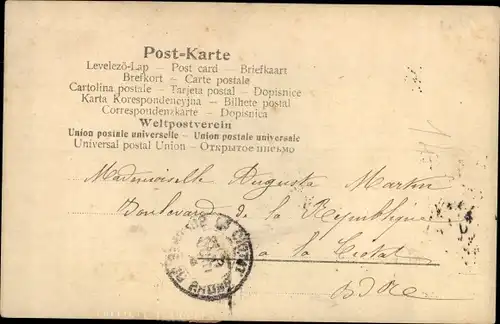 Post-Karte
Levelező-Lap – Post card – Briefkaart
Brefkort – Carte postale
Cartolina postale – Tarjeta postal – Dopisnice
Karta Korespondencyjna – Bilhete postal
Correspondenzkarte – Dopisnica
Weltpostverein
Union postale universelle – Union postale universale
Universal postal Union – Открытое письмо
Mademoiselle Augusta Martin
Boulevard de la République
à la Ciotat
BDRe
LA CIOTAT
BCHES DU RHONE